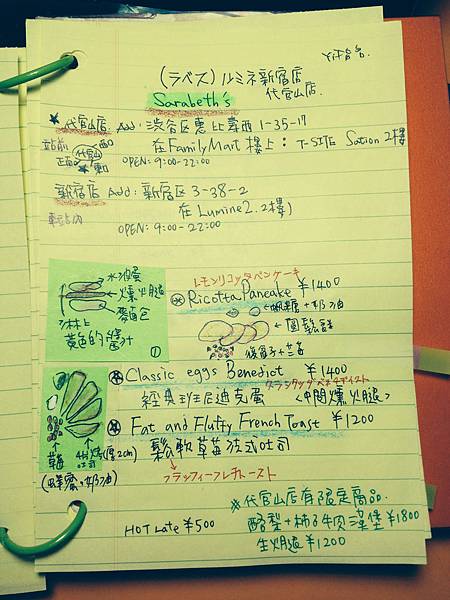 (ラベス)ルミネ新宿店
代官山店.
Sarabeth's
代官山店 Add: 渋谷区恵比寿西 1-35-17
站前
代官山
正面
在FamilyMart 樓上: T-SITE Sation 2樓
OPEN: 9:00-22:00
新宿店 Add: 新宿区 3-38-2
在 Lumine2. 2樓)
OPEN: 9:00-22:00
水波蛋
煙燻火腿
麵包
淋上
黃色的醬汁
①
レモンリコッタパンケーキ
Ricotta Pancake ¥1400
楓糖+奶油
圓鬆餅
Classic eggs Benedict ¥1400
クラシックエッグベネディクト
經典班尼迪克蛋 <中間燻火腿>
Fat and Fluffy French Toast ¥1200
鬆軟草莓法式吐司
フラッフィーフレンチトースト
草莓
(厚2cm)
(蜂蜜,奶油)
※代官山店有限定商品.
酪梨+柿子牛肉漢堡¥1800
生火腿¥1200
HOT Late ¥500